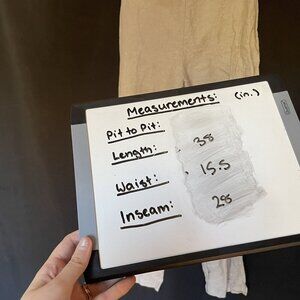 Measurements: (in.)
Pit to Pit:
Length: 38
Waist: 15.5
Inseam: 28